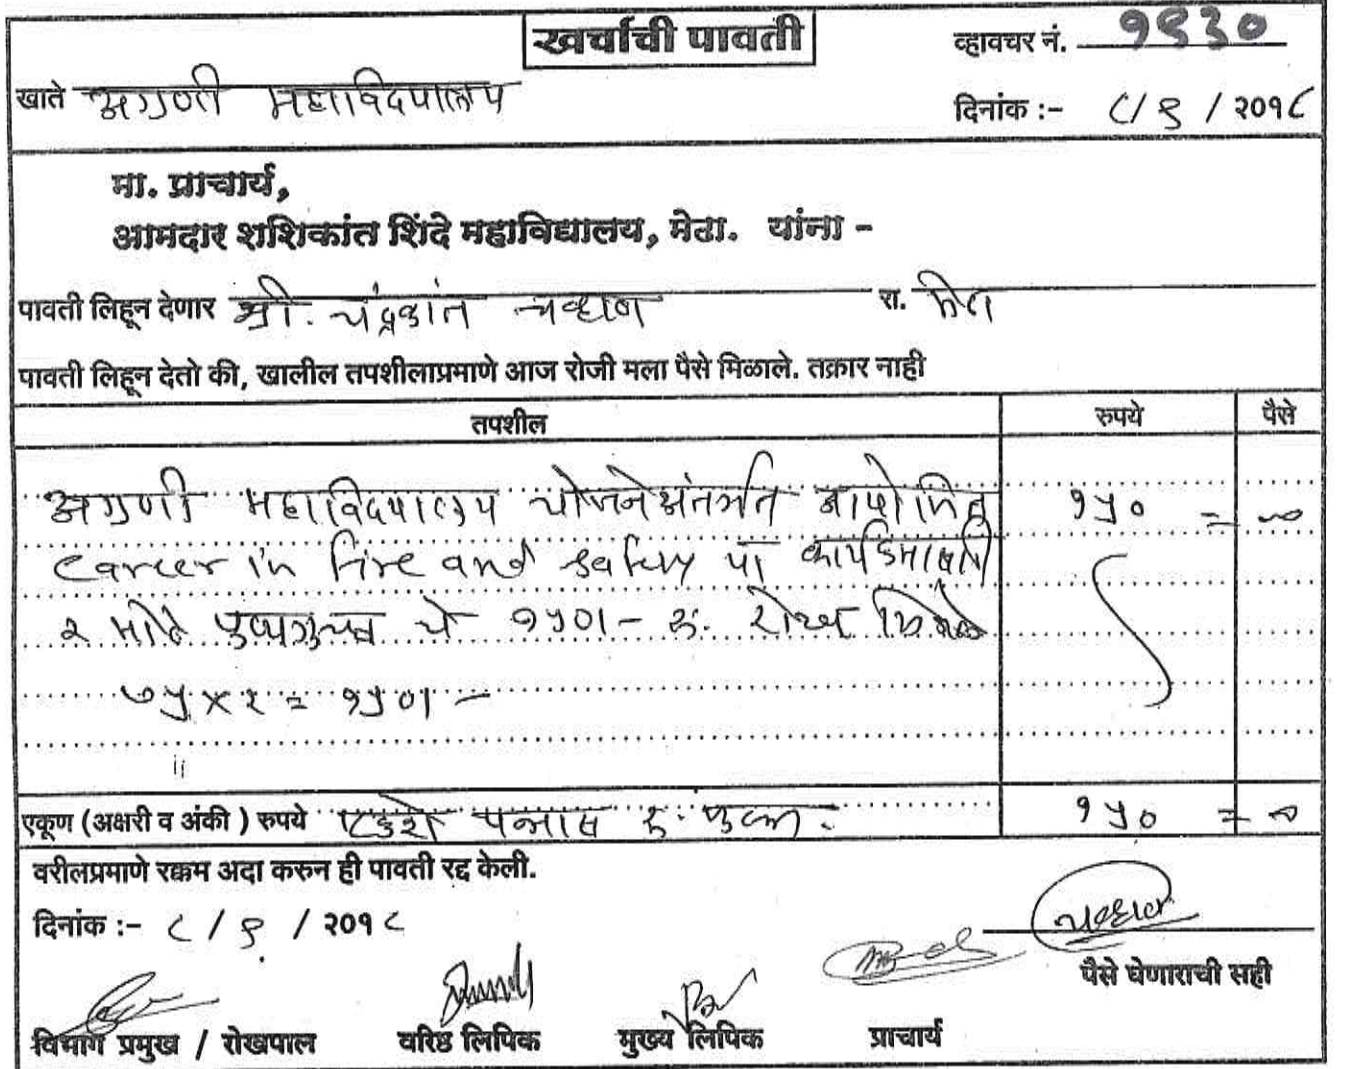 खर्चाची पावती
व्हावचर नं. १९३०
खाते अग्रणी महाविद्यालय
दिनांक :- ८/९/२०१८
मा. प्राचार्य,
आमदार शशिकांत शिंदे महाविद्यालय, मेढा. यांना -
पावती लिहून देणार श्री. चंद्रकांत चव्हाण रा. मेढा
पावती लिहून देतो की, खालील तपशीलाप्रमाणे आज रोजी मला पैसे मिळाले. तक्रार नाही
तपशील रुपये पैसे
अग्रणी महाविद्यालय योजनेअंतर्गत आयोजित १५० = ००
career in fire and safety या कार्यक्रमासाठी
२ मोठे पुष्पगुच्छ चे १५०/- रु. रोख मिळाले
७५ x २ = १५०/-
एकूण (अक्षरी व अंकी ) रुपये एकशे पन्नास रु. फक्त. १५० = ००
वरीलप्रमाणे रक्कम अदा करुन ही पावती रद्द केली.
दिनांक :- ८/९/२०१८
चव्हाण
पैसे घेणाराची सही
विभाग प्रमुख / रोखपाल वरिष्ठ लिपिक मुख्य लिपिक प्राचार्य